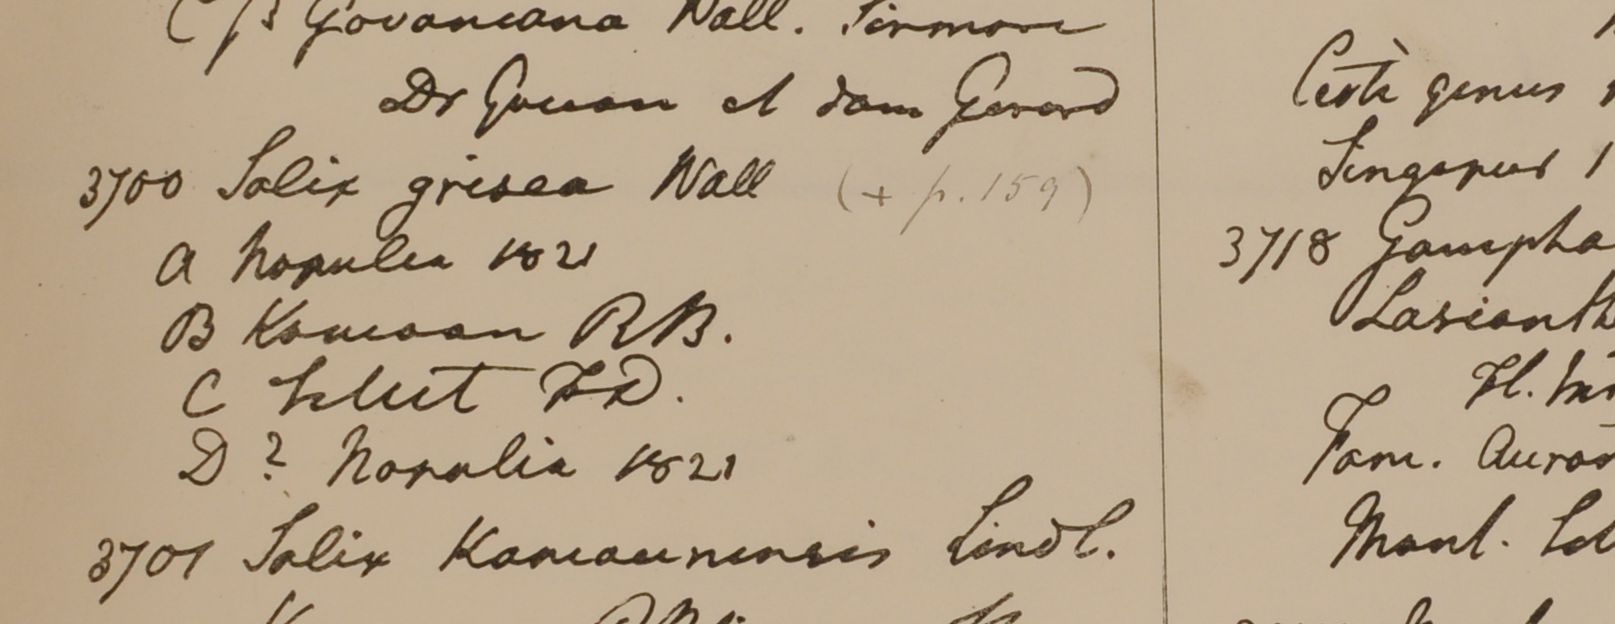 C /β Govaniana Wall. Sirmore
Dr Govan et dam Gerard
3700 Salix grisea Wall (+ p. 159)
A Napalia 1821
B Kamaon R B.
C Selut HD.
D? Napalia 1821
3701 Salix Kamaunensis Lindl.
Certè genus
Singapur 1
3718 Gompha
Lasianth
Hl.
Fam. Auran
Mont. Sil